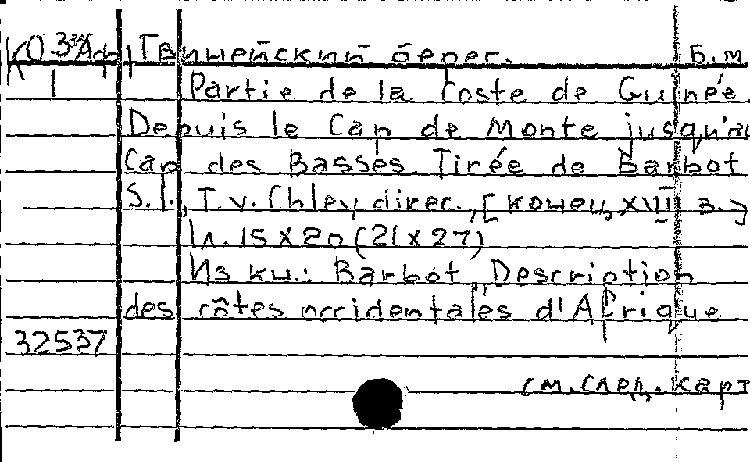 КО 3/Аф Гвинейский берег. Б.м
1 Partie de la Coste de Guinée
Depuis le Cap de Monte jusqu'au
Cap des Basses. Tirée de Barbot
S.l., T.v. Chley direc., [конец XVIII в.]
1л. 15x20 (21x27)
Из кн.: Barbot "Description
des côtes occidentales d'Afrique
32537
см. след. карт